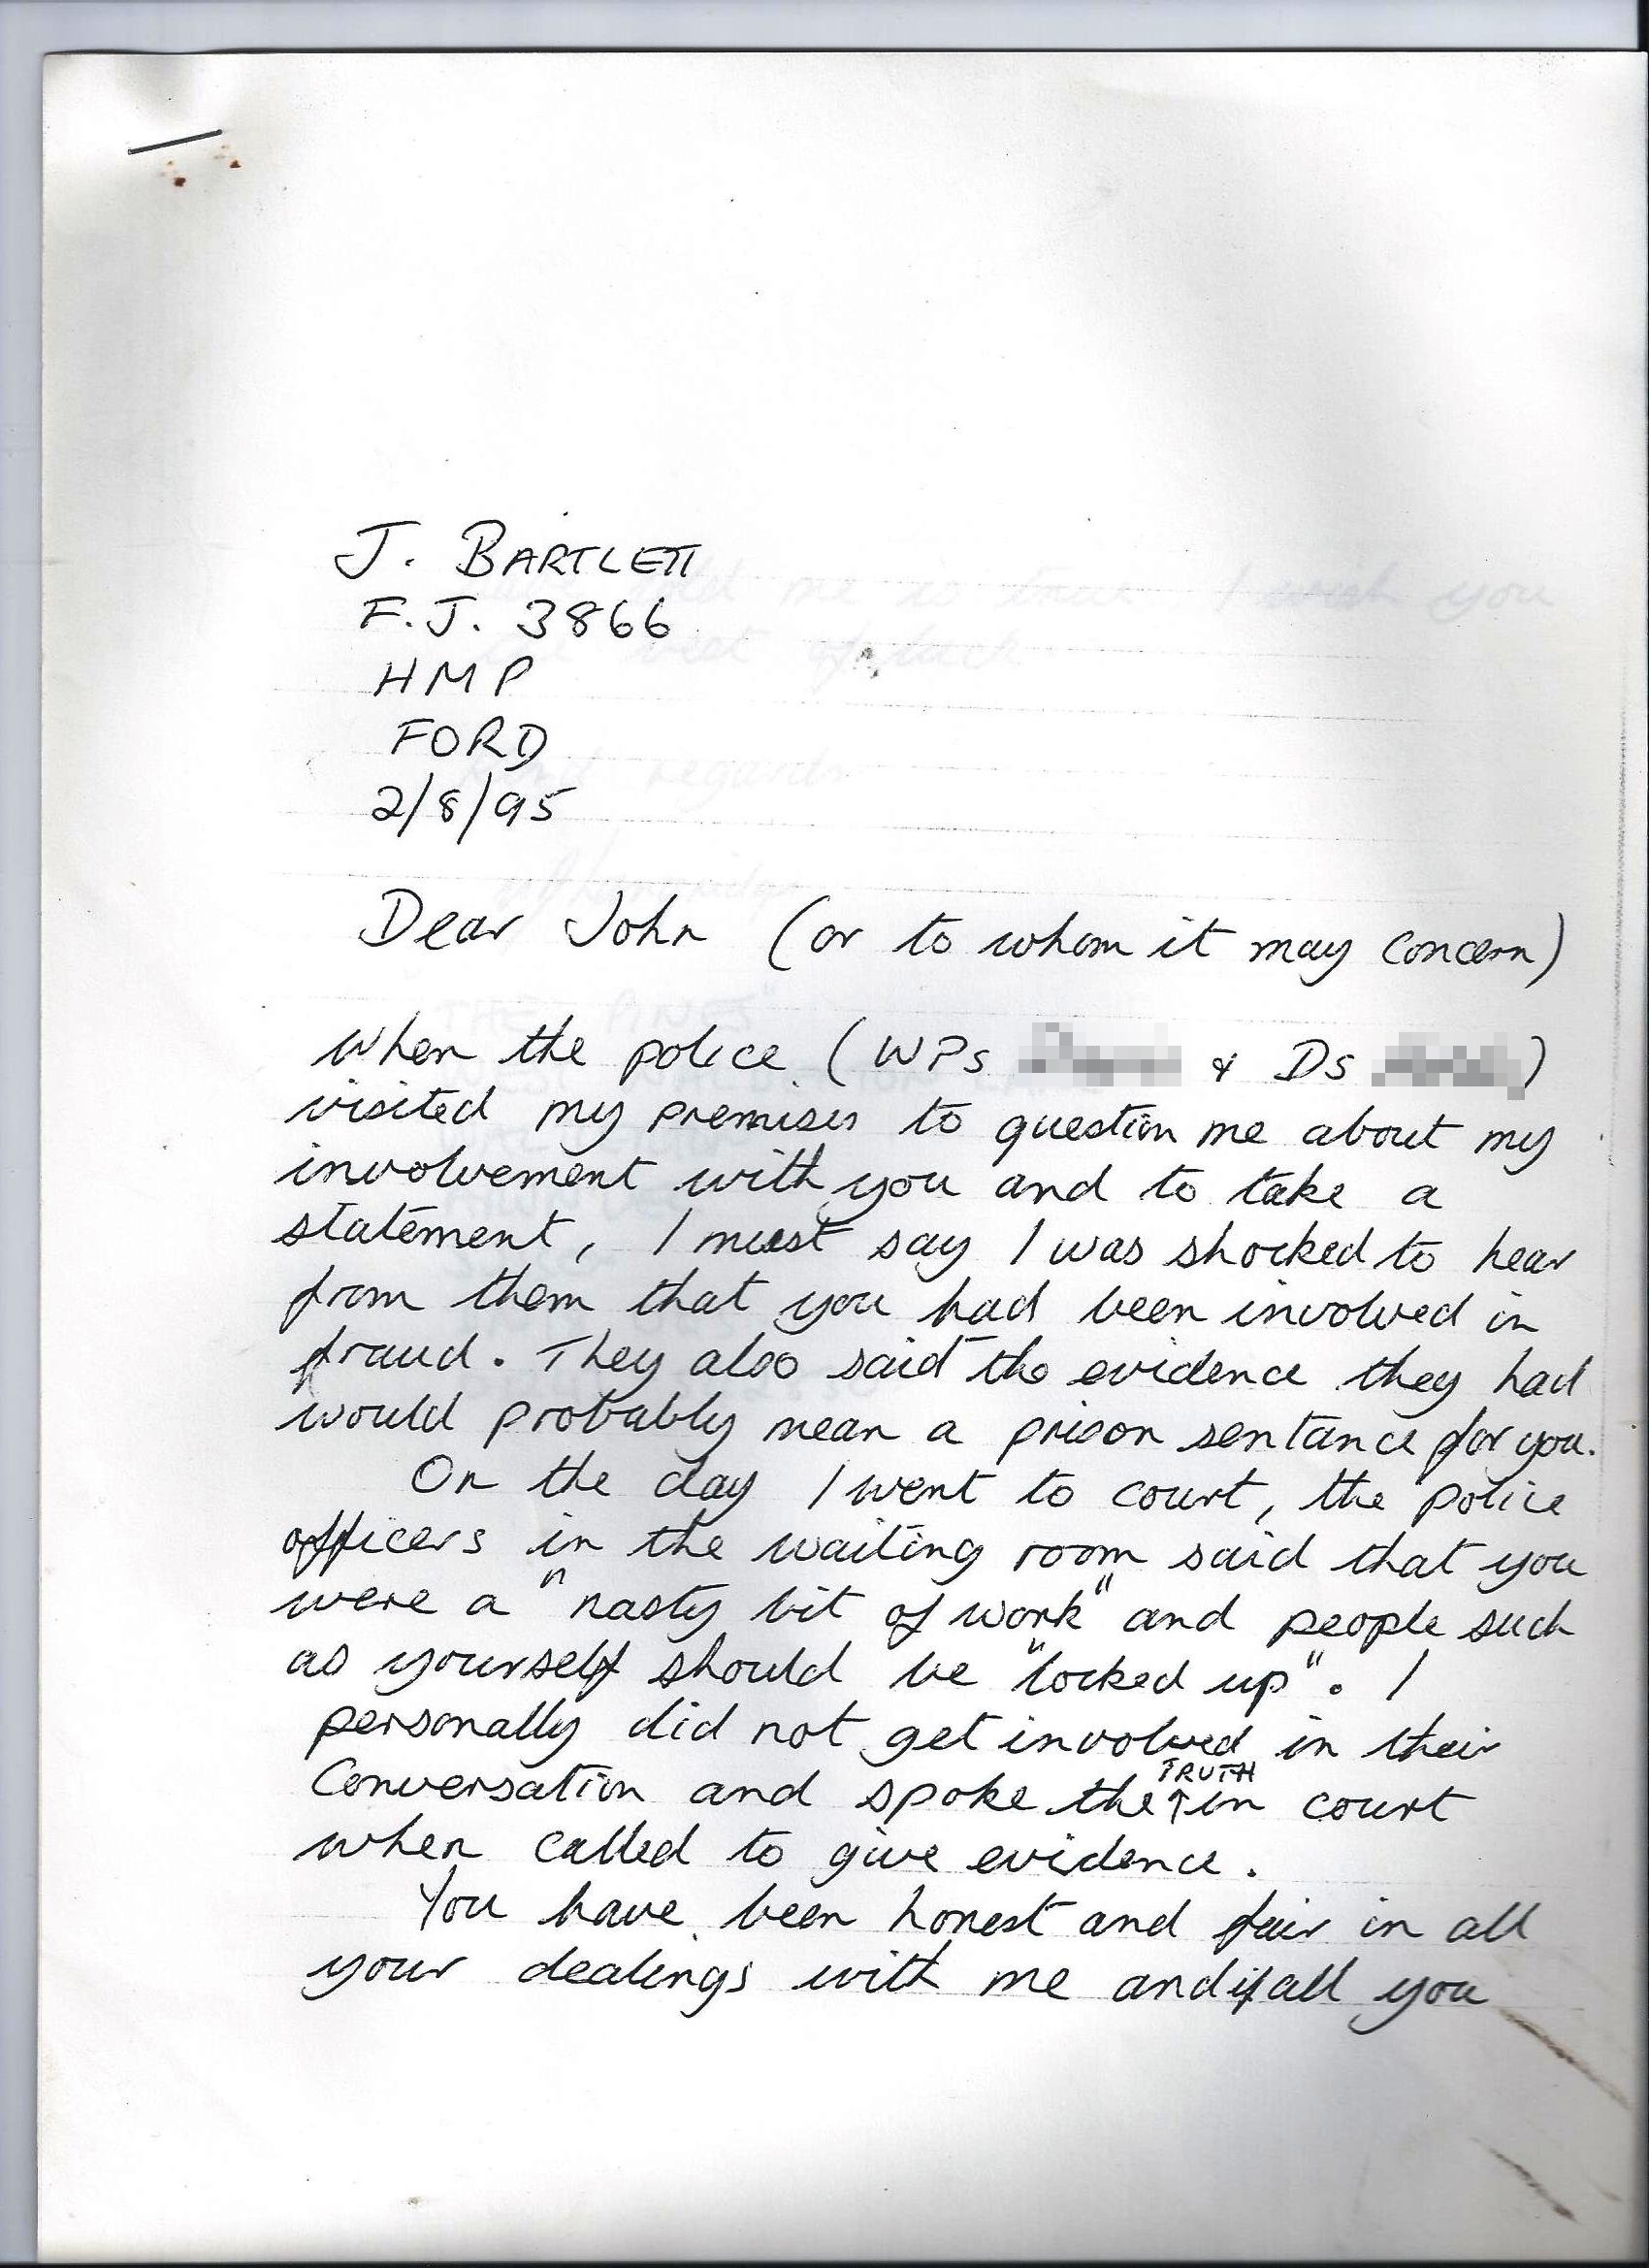 J. BARTLETT
F.J. 3866
HMP
FORD
2/8/95
Dear John (or to whom it may concern)
When the police (WPs & Ds )
visited my premises to question me about my
involvement with you and to take a
statement, I must say I was shocked to hear
from them that you had been involved in
fraud. They also said the evidence they had
would probably mean a prison sentance for you.
On the day I went to court, the police
officers in the waiting room said that you
were a "nasty bit of work" and people such
as yourself should be "locked up". I
personally did not get involved in their
Conversation and spoke the TRUTH in court
when called to give evidence.
You have been honest and fair in all
your dealings with me and if all you